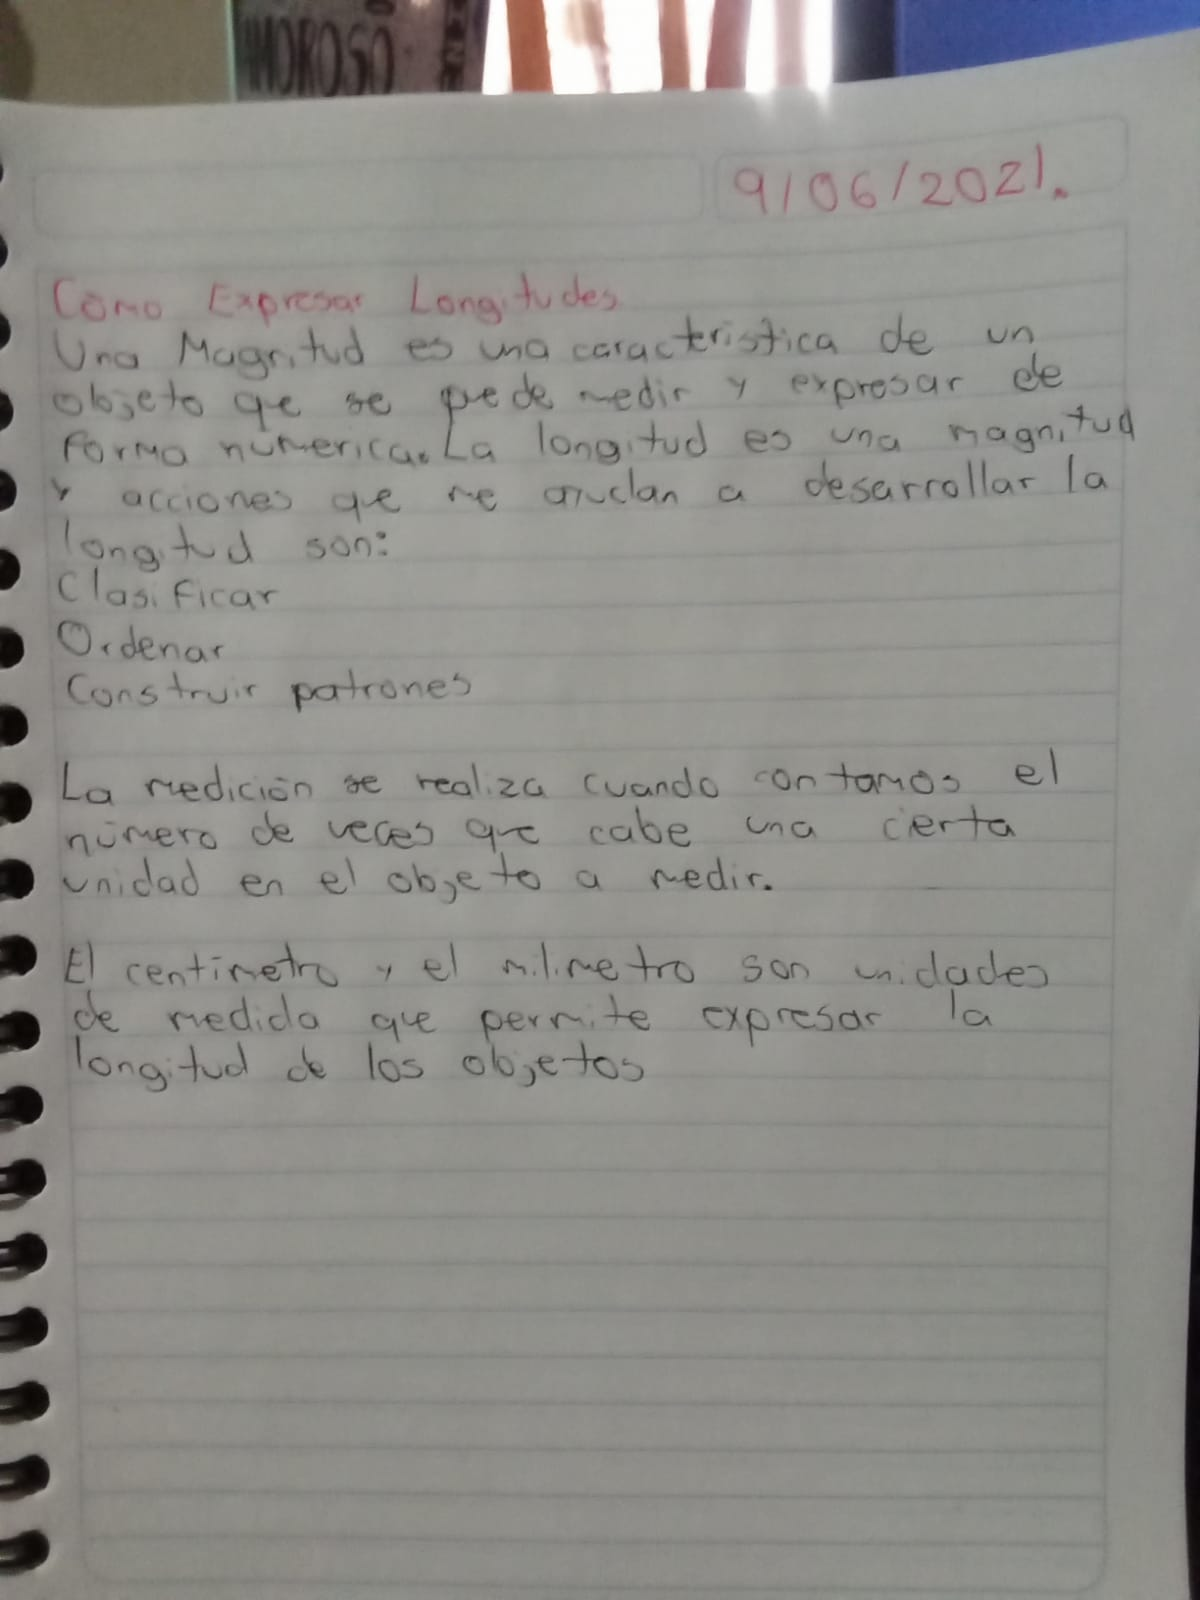 MOROSO
9/06/2021.
Como Expresar Longitudes
Una Magnitud es una caracteristica de un
objeto que se puede medir y expresar de
forma numerica. La longitud es una magnitud
y acciones que me ayudan a desarrollar la
longitud son:
Clasificar
Ordenar
Construir patrones
La medición se realiza cuando contamos el
número de veces que cabe una cierta
unidad en el objeto a medir.
El centimetro y el milimetro son unidades
de medida que permite expresar la
longitud de los objetos